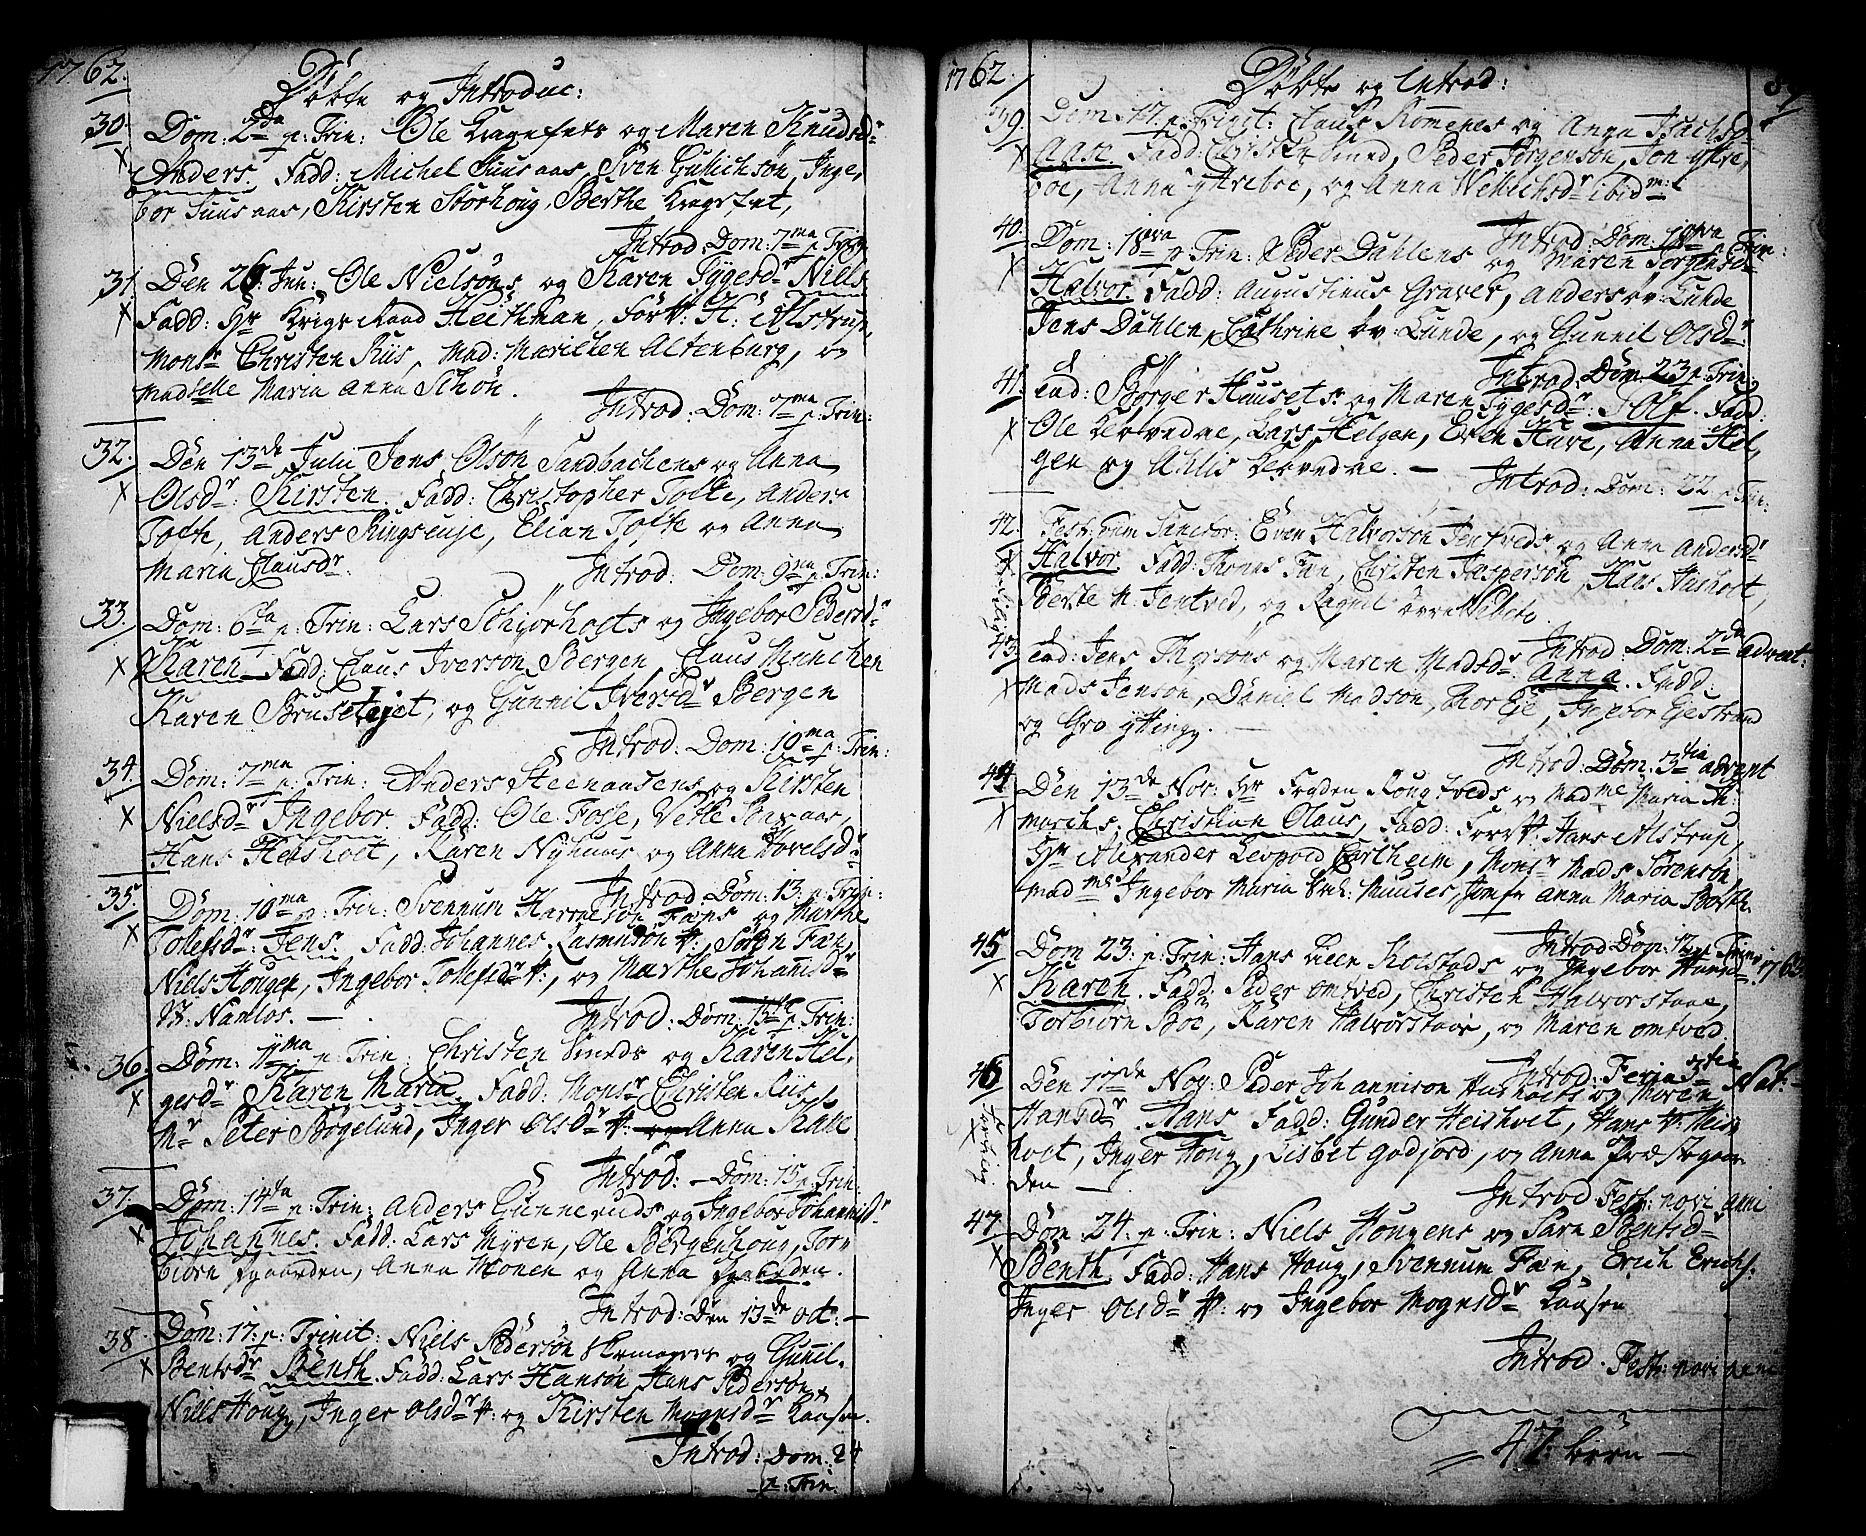 1762.
Døbte og Introduc:
30. Dom: 2da p: Trin: Ole Kragefets og Maren Knudsdr
Anders. Fadd: Michel Suusaas, Sven Gulichsøn, Inge,
bor Suusaas, Kirsten Storhoug, Berthe Kragefet,
Introd: Dom: 7ma p Trin:
31. Den 26: Jun: Ole Nielsøns og Karen Tygesdr Niels
Fadd: Hr Krigs Raad Heithman, Forv: H: Alstrup,
Monsr Christen Riis, Mad: Marichen Altenburg, og
Madselle Maria Anna Schøn.
Introd: Dom: 7ma p: Trin:
32. Den 13de Julii Jens Olsøn Sandbachens og Anna
Olsdr: Kirsten. Fadd: Christopher Tofte, Anders
Tofte, Anders Ringseuje, Elien Tofte og Anna
Maria Clausdr.
Introd: Dom: 9na p: Trin:
33. Dom: 6ta p: Trin: Lars Schiørholts og Ingebor Pedersdr
Karen. Fadd: Claus Iversøn Bergen, Claus München
Karen Brusetejet, og Gunnil Iversdr Bergen
Introd: Dom: 10ma p: Trin:
34. Dom: 7ma p: Trin: Anders Steenaasens og Kirsten
Nielsdr Ingebor. Fadd: Ole Fose, Vetle Baasaas,
Hans Heisholt, Karen Nyhuus og Anna Hovelsdr
Introd Dom: 13 p: Trin:
35. Dom: 10ma p: Trin: Svennum Harmeson Fæns og Marthe
Tollefsdr: Jens. Fadd: Johannes Rasmusøn V:, Søren Fæn,
Niels Hougen, Ingebor Tollefsdr V:, og Marthe Johanisdr
V: Namlos.
Introd: Dom: 13 p: Trin:
36. Dom: 11ma p: Trin: Christen Smeds og Karen Hel,
gesdr Karen Maria. Fadd: Monsr Christen Riis,
Mr Peter Bøgelund, Inger Olsdr V: og Anna Kall
Introd: Dom: 15 p Trin:
37. Dom: 14ta p: Trin: Anders Gunneruds og Ingebor Johannisdr
Johannes. Fadd: Lars Myren, Ole Bergenhoug, Tor,
biørn Pgaarden, Anna Monen og Anna Pgaarden.
Introd: Den 13de oct:
38. Dom: 17: p: Trinit: Niels Pedersøn og Gunil.
Bentsdr Benth. Fadd: Lars Hansøn, Hans Pedersøn,
Niels Houg, Inger Olsdr V: og Kirsten Mognsdr Kaasen.
Introd: Dom: 24
p: Trin
1762.
Døbte og Introd:
39. Dom: 17. p: Trinit: Claus Romenes og Anna Isachsdr
Aase. Fadd: Christen Smed, Peder Jørgensøn, Jon Ytre,
boe, Anna Ytreboe, og Anna Wellichsdr ibidm:
Introd: Dom: 18va p Trin:
40. Dom: 18ava p Trin: Peder Dahlens og Maren Jørgensdr
Halvor. Fadd: Augustinus Graver, Anders øv: Lunde
Jens Dahlen, Cathrine øv: Lunde, og Gunnil Olsdr:
Introd: Dom 23 p: Trin:
41. ead: Børge Huusets og Maren Tygesdr: Tolf. Fadd:
Ole Lervedne, Lars Helgen, Even Hare, Anna Hel,
gen og Ahlis Lervedne.
Introd: Dom: 22 p: Trin:
42. Fest: Oum Sanctor: Even Halvorsøn Jentveds og Anna Andersdr
Halvor. Fadd: Thomas Fæn, Christen Jaspersøn, Hans Aasholt,
Berthe N. Jentved, og Ragnil Nibito.
Introd: Dom: 2da advent:
43. ead: Jens Thorsøns og Maren Madsdr: Anna. Fadd:
Mads Jensøn, Daniel Madsøn, Thor Eje, Ingebor Ejestrand
og Gro
Introd: Dom: 3tia advent
44. Den 13de Nov: Hr Fogden Rougtveds og Madme Maria 
morchs. Christian Olaus, Fadd: Forv: Hans Alstrup,
Hr Alexander Leopold Cartheim, Monsr Mads Sørensøn,
Madmes Ingebor Maria Muuses, Jomfr Anna Maria Barth.
Introd Dom: 12 p Trin: 1763
45. Dom 23: p: Trin: Hans Lien Kolstads og Ingebor Hansdr
Karen. Fadd: Peder Omtved, Christen Halvorstaae,
Torbiørn Boe, Karen Halvorstaae, og Maren Omtved
Introd: Feria 3tia Nat:
46. Den 17de Nov: Peder Johannison Aasholts og Maren
Hansdr. Hans Fadd: Gunder Heisholt, Hans V: Heis
holt, Inger Houg, Lisbet Godjord, og Anna Præstgaar
den
Introd Fest: novi anni
47. Dom: 24. p: Trin: Niels Hougens og Sara Bentsdr
Benth. Fadd: Hans Houg, Svennum Fæn, Erich Erichs.
Inger Olsdr V: og Ingebor Mognsdr Kaasen
Introd. Fest: novi anni
47: børn